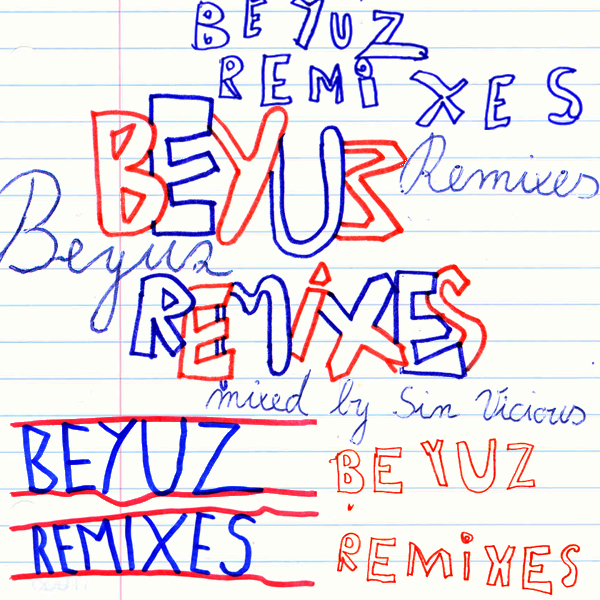 BEYUZ
REMiXES
BEYUZ
Remixes
Beyuz
REMiXES
mixed by Sin Vicious
BEYUZ
REMIXES
BEYUZ
REMiXES